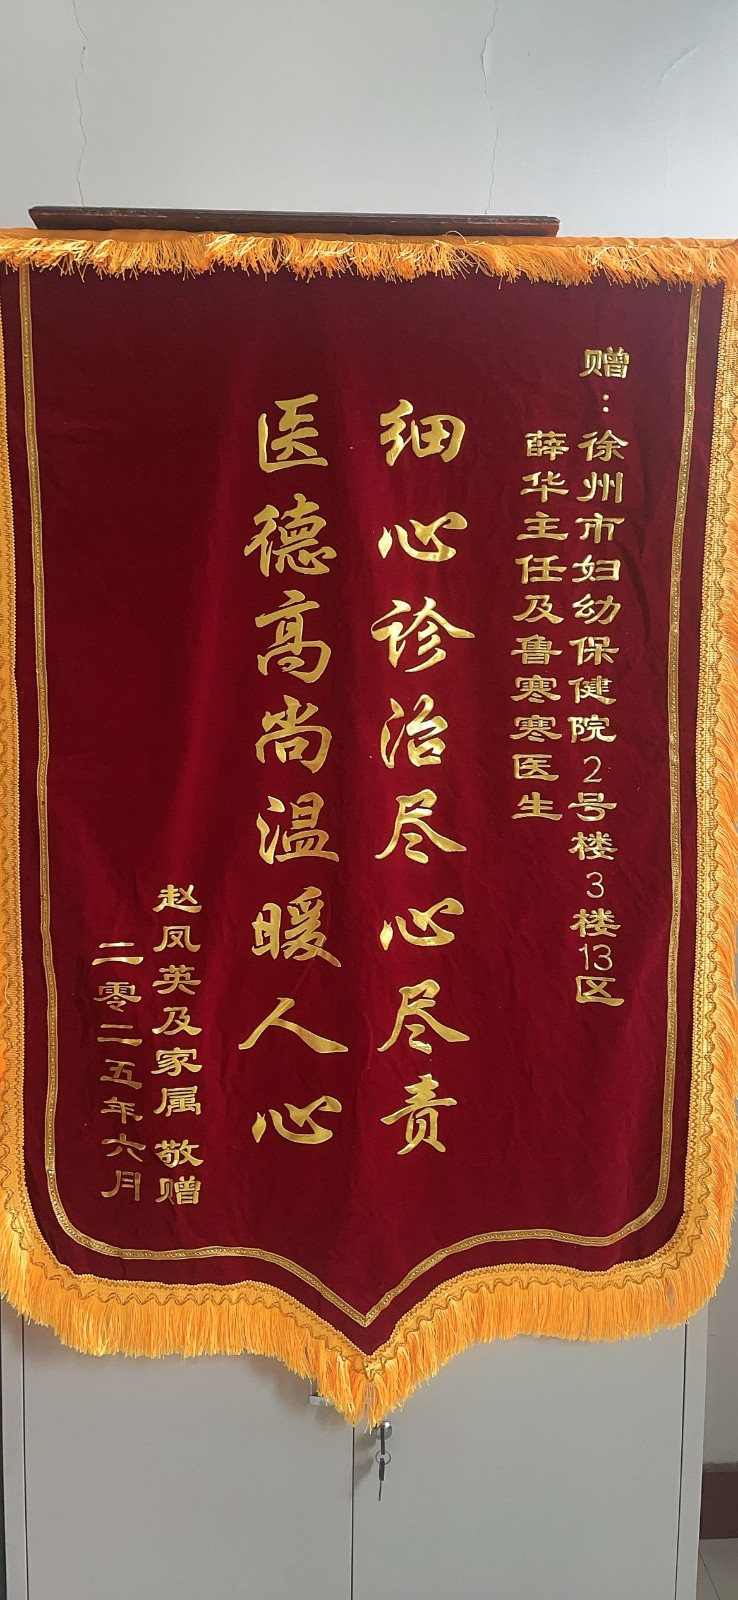 赠：徐州市妇幼保健院2号楼3楼13区
薛华主任及鲁寒寒医生
细心诊治尽心尽责
医德高尚温暖人心
赵凤英及家属 敬赠
二零二五年六月